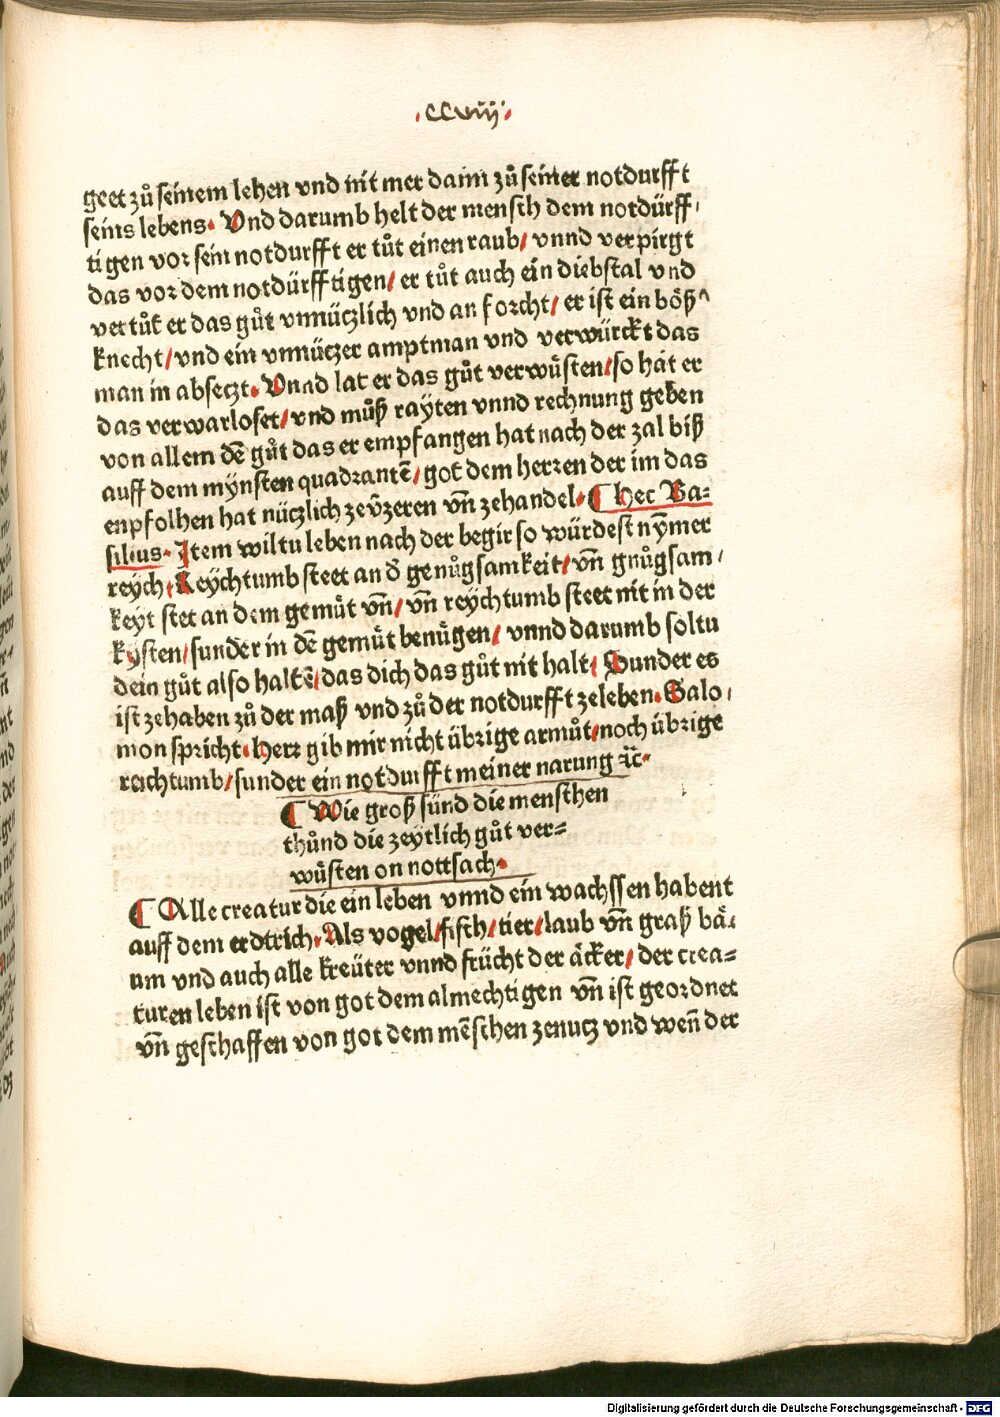 .ccviij.
geet zů seinem lehen vnd nit mer dann zů seiner notdurfft
seins lebens. Vnd darumb helt der mensch dem notdürff/
tigen vor sein notdurfft er tůt einen raub/ vnnd verpirgt
das vor dem notdürfftigen/ er tůt auch ein diebstal vnd
vertůt er das gůt vnnützlich vnd an forcht/ er ist ein bößz
knecht/ vnd ein vnnützer amptman vnd verwürckt das
man in absetzt. Vnnd lat er das gůt verwůsten/ so hat er
das verwarloset/ vnd můß raÿten vnnd rechnung geben
von allem dē gůt das er empfangen hat nach der zal biß
auff dem mÿnsten quadrantē/ got dem herren der im das
enpfolhen hat nützlich zevͤzeren vn̄ zehandel. ¶ hec Ba⸗
silius. Item wiltu leben nach der begir so würdest nÿmer
reÿch. Reÿchtumb steet an d̄ genůgsamkeit/ vn̄ gnůgsam/
keyt stet an dem gemůt vn̄/ vn̄ reÿchtumb steet nit in der
kysten/ sunder in dē gemůt benůgen/ vnnd darumb soltu
dein gůt also haltē/ das dich das gůt nit halt/ Sunder es
ist zehaben zů der maß vnd zů der notdurfft zeleben. Salo/
mon spricht. herr gib mir nicht übrige armůt/ noch übrige
reichtumb/ sunder ein notdurfft meiner narung ꝛc̄.
¶ Wie groß sünd die menschen
thůnd die zeÿtlich gůt ver⸗
wůsten on nottsach.
¶ Alle creatur die ein leben vnnd ein wachssen habent
auff dem erdtrich. Als vogel/ fisch/ tier/ laub vn̄ graß bä/
um vnd auch alle kreüter vnnd frücht der äcker/ der crea⸗
turen leben ist von got dem almechtigen vn̄ ist geordnet
vn̄ geschaffen von got dem mēschen zenutz vnd wen̄ der
Digitalisierung gefördert durch die Deutsche Forschungsgemeinschaft - DFG